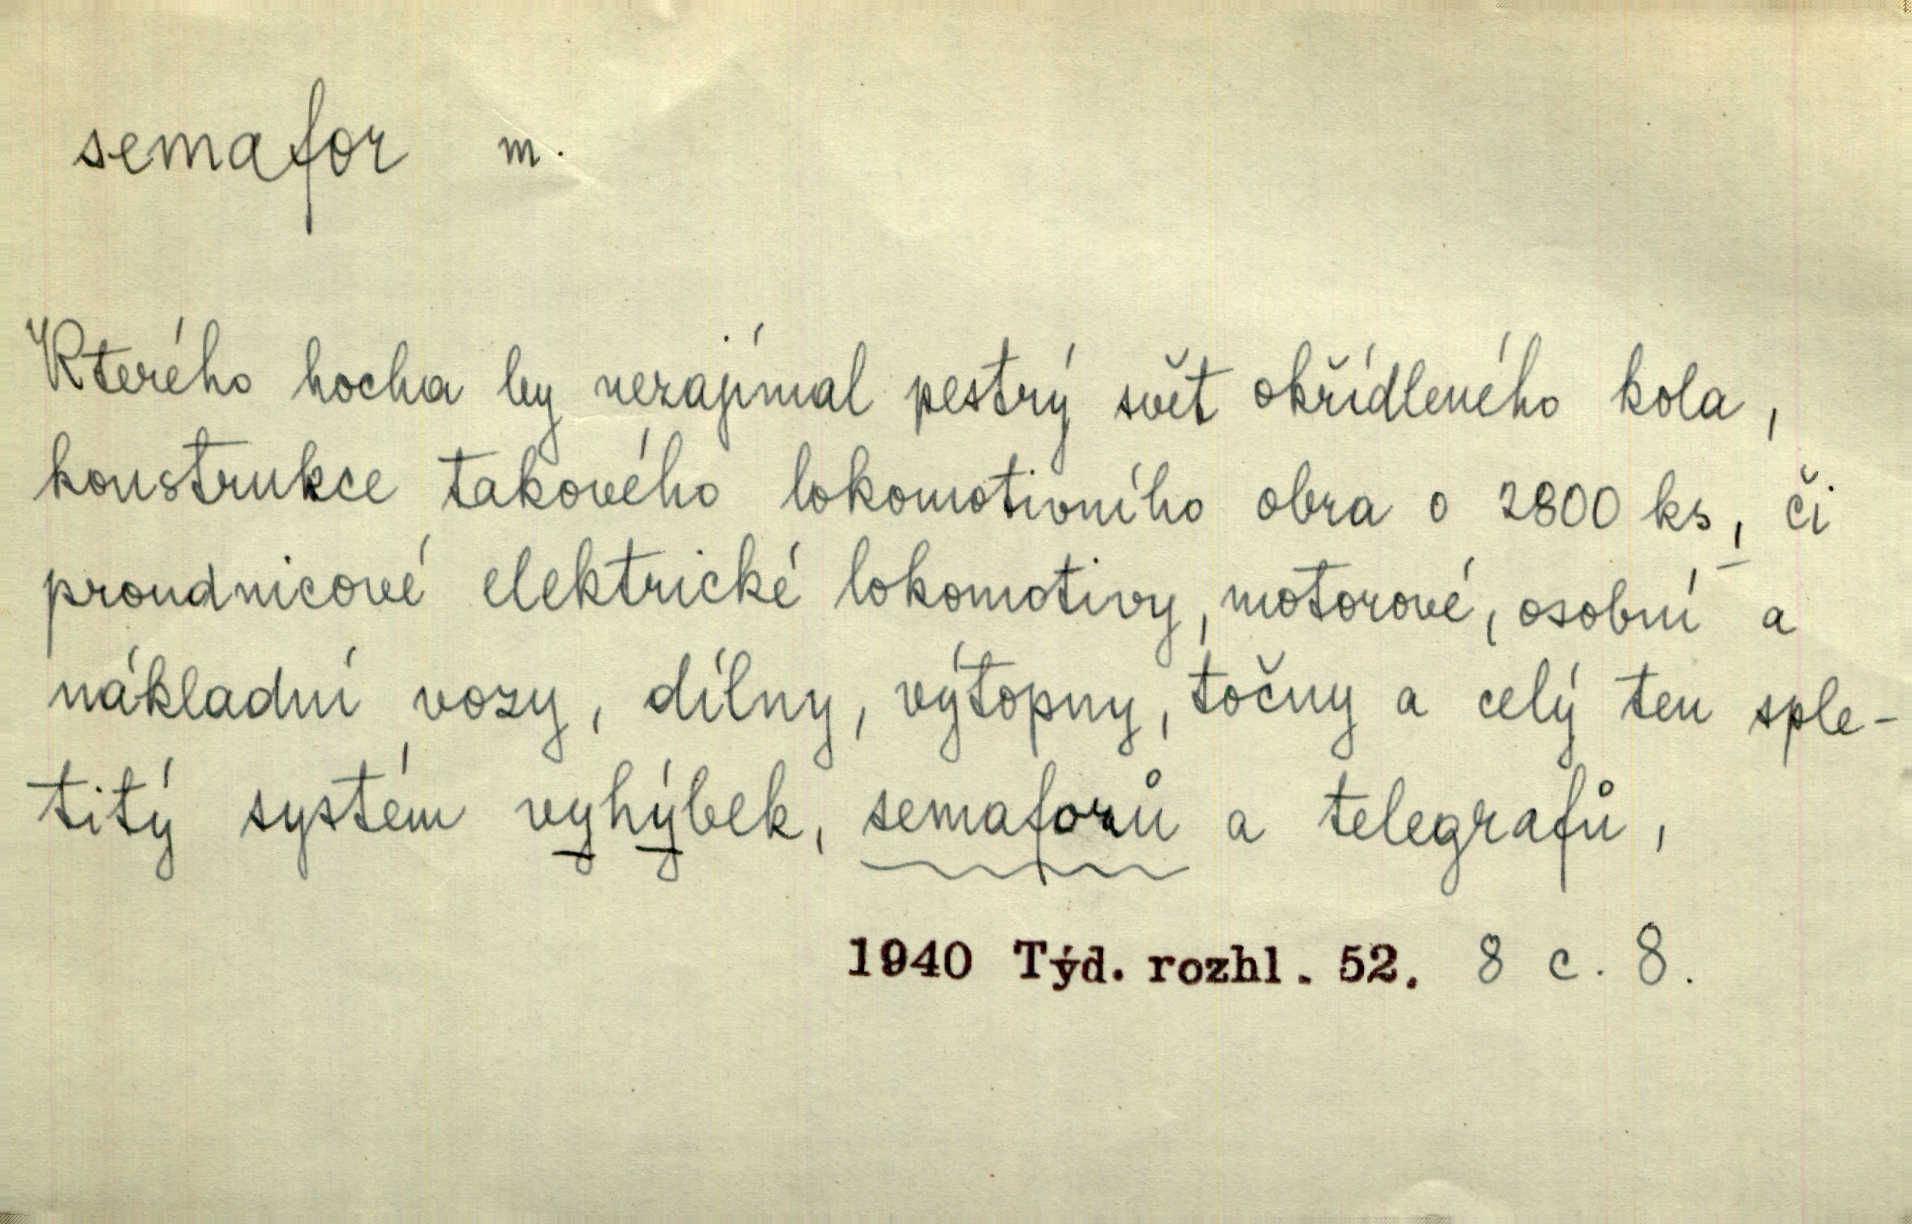 semafor m.
Kterého hocha by nezajímal pestrý svět okřídleného kola,
konstrukce takového lokomotivního obra o 2800 ks, či
proudnicové elektrické lokomotivy, motorové, osobní a
nákladní vozy, dílny, výtopny, točny a celý ten sple-
titý systém vyhýbek, semaforů a telegrafů,
1940 Týd. rozhl. 52. 8 c. 8.